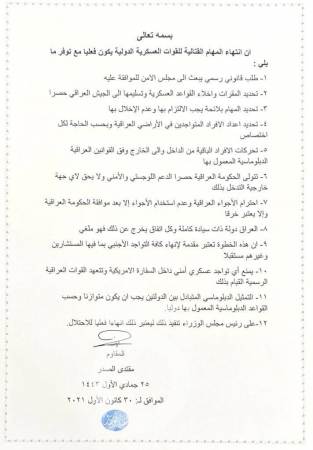 بسمه تعالى
ان انتهاء المهام القتالية للقوات العسكرية الدولية يكون فعليا مع توفر ما
يلي :
١- طلب قانوني رسمي يبعث الى مجلس الامن للموافقة عليه
٢- تحديد المقرات واخلاء القواعد العسكرية وتسليمها الى الجيش العراقي حصرا
٣- تحديد المهام بلائحة يجب الالتزام بها وعدم الإخلال بها
٤- تحديد اعداد الافراد المتواجدين في الأراضي العراقية وبحسب الحاجة لكل
اختصاص
٥- تحركات الافراد الباقية من الداخل والى الخارج وفق القوانين العراقية
الدبلوماسية المعمول بها
٦- تتولى الحكومة العراقية حصرا الدعم اللوجستي والأمني ولا يحق لاي جهة
خارجية التدخل بذلك
٧- احترام الأجواء العراقية وعدم استخدام الأجواء إلا بعد موافقة الحكومة العراقية
وإلا يعتبر خرقا
٨- العراق دولة ذات سيادة كاملة وكل اتفاق يخرج عن ذلك فهو ملغي
٩- ان هذه الخطوة تعتبر مقدمة لإنهاء كافة التواجد الأجنبي بما فيها المستشارين
وغيرهم مستقبلا
١٠- يمنع أي تواجد عسكري أمني داخل السفارة الامريكية وتتعهد القوات العراقية
الرسمية القيام بذلك
١١- التمثيل الدبلوماسي المتبادل بين الدولتين يجب ان يكون متوازنا وحسب
القواعد الدبلوماسية المعمول بها دوليا.
١٢-على رئيس مجلس الوزراء تنفيذ ذلك ليعتبر ذلك انهاءا فعليا للاحتلال.
المقاوم
مقتدى الصدر
٢٥ جمادي الأول ١٤٤٣
الموافق لـ: ٣٠ كانون الأول ٢٠٢١